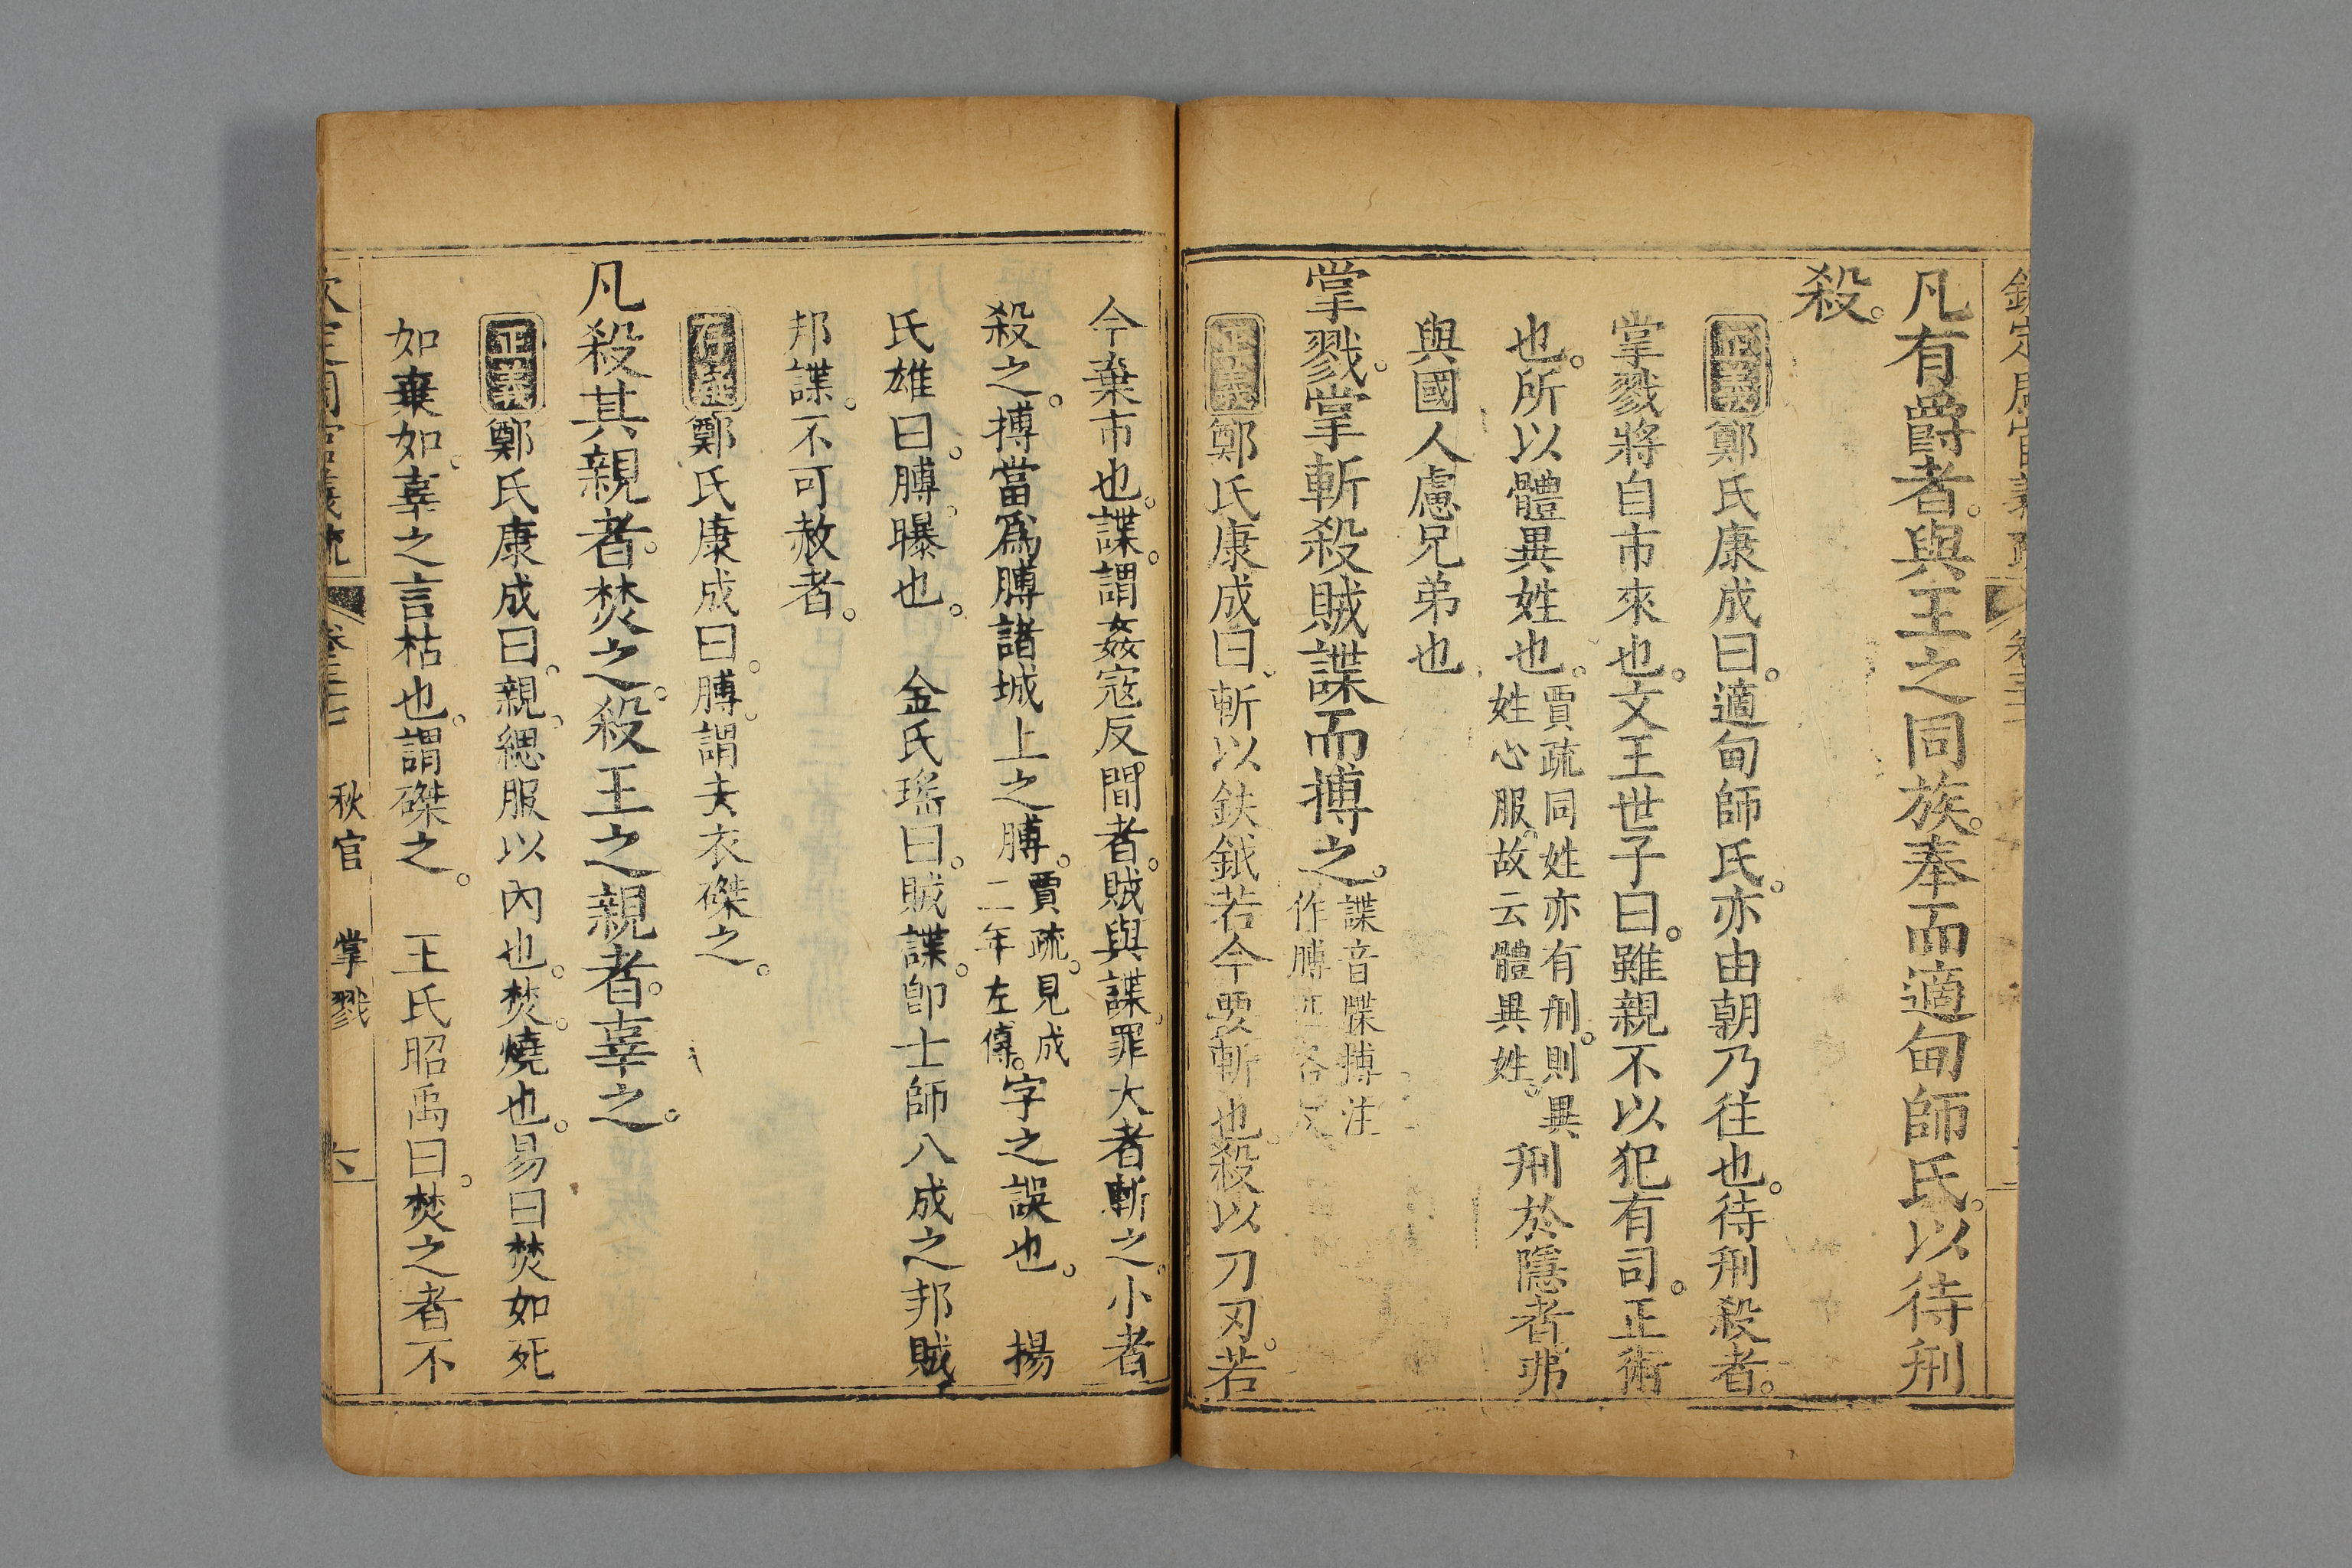 凡有爵者與王之同族奉而適甸師氏以待刑
殺
正義鄭氏康成曰適甸師氏亦由朝乃往也待刑殺者
掌戮將自市來也文王世子曰雖親不以犯有司正術
也所以體異姓也
賈疏同姓亦有刑則異
姓心服故云體異姓
刑於隱者弗
與國人慮兄弟也
掌戮掌斬殺賊諜而搏之
諜音牒搏注
作膊
正義鄭氏康成曰斬以鈇鉞若今要斬也殺以刀刃若
今棄市也諜謂姦寇反間者賊與諜罪大者斬之小者
殺之搏當爲膊諸城上之膊
賈疏見成
二年左傳
字之誤也 揚
氏雄曰膊曝也 金氏瑤曰賊諜卽士師八成之邦賊
邦諜不可赦者
存疑鄭氏康成曰膊謂去衣磔之
凡殺其親者焚之殺王之親者辜之
正義鄭氏康成曰親緦服以內也焚燒也易曰焚如死
如棄如辜之言枯也謂磔之 王氏昭禹曰焚之者不
秋官 掌戮 六